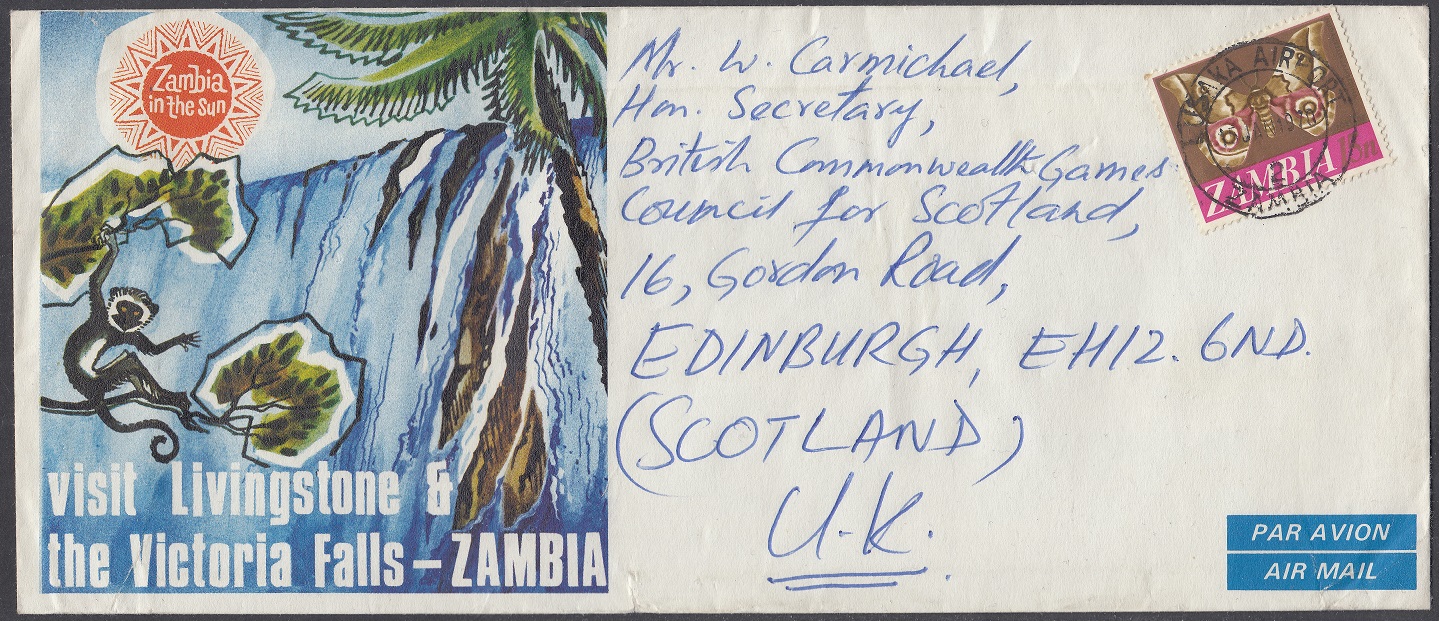 Zambia
in the sun
visit Livingstone &
the Victoria Falls – ZAMBIA
Mr. W. Carmichael,
Hon. Secretary,
British Commonwealth Games
Council for Scotland,
16, Gordon Road,
EDINBURGH, EH12. 6ND.
(SCOTLAND)
U.K.
LUSAKA AIRPORT
ZAMBIA
ZAMBIA 15n
PAR AVION
AIR MAIL